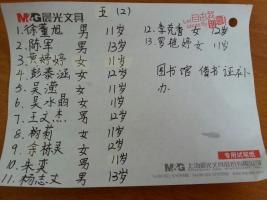 M&G 晨光文具
王(2)
自由我
1.徐董旭 男 11岁
2.陈军 男 13岁
3.黄婷婷 女 11岁
4.彭泰涵 女 12岁
5.吴滢 女 11岁
6.吴水晶 女 11岁
7.王文杰 男 12岁
8.鞠莉 女 11岁
9.余栋灵 女 12岁
10.朱奕 男 11岁
11.杨志文 男 13岁
12.李苑香 女 12岁
13.罗艳婷 女 11岁
图书馆 借书证补
办.
专用试写纸
M&G 上海晨光文具股份有限公司